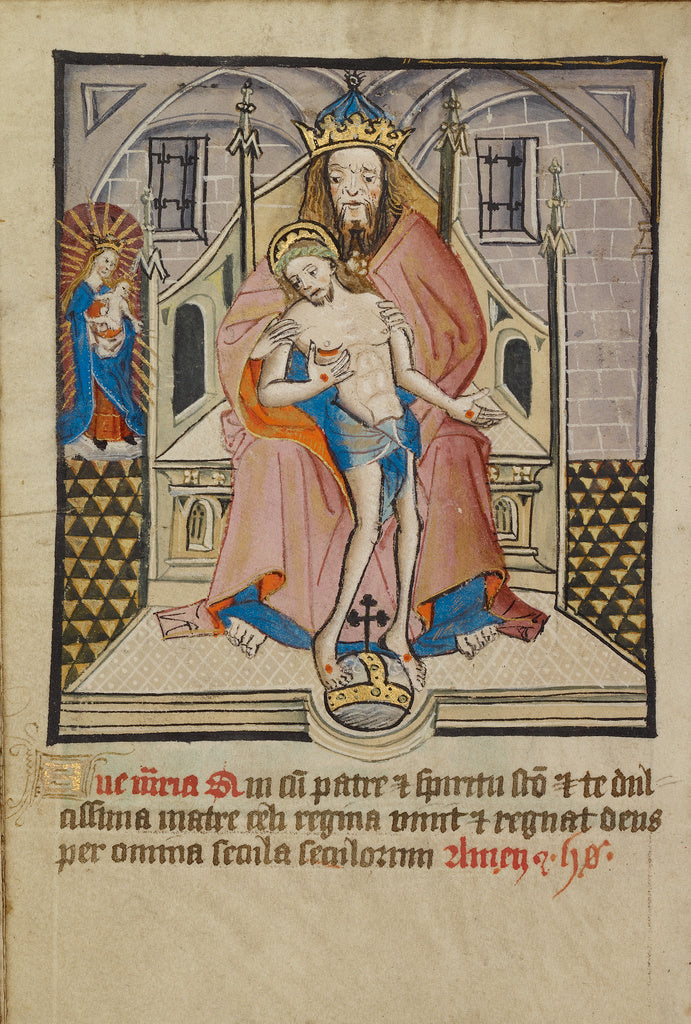 Aue m̄ria Qui cū patre ⁊ spiritu stō ⁊ te dul
cissima matre celi regina viuit ⁊ regnat deus
per omnia secula seculorum Amen